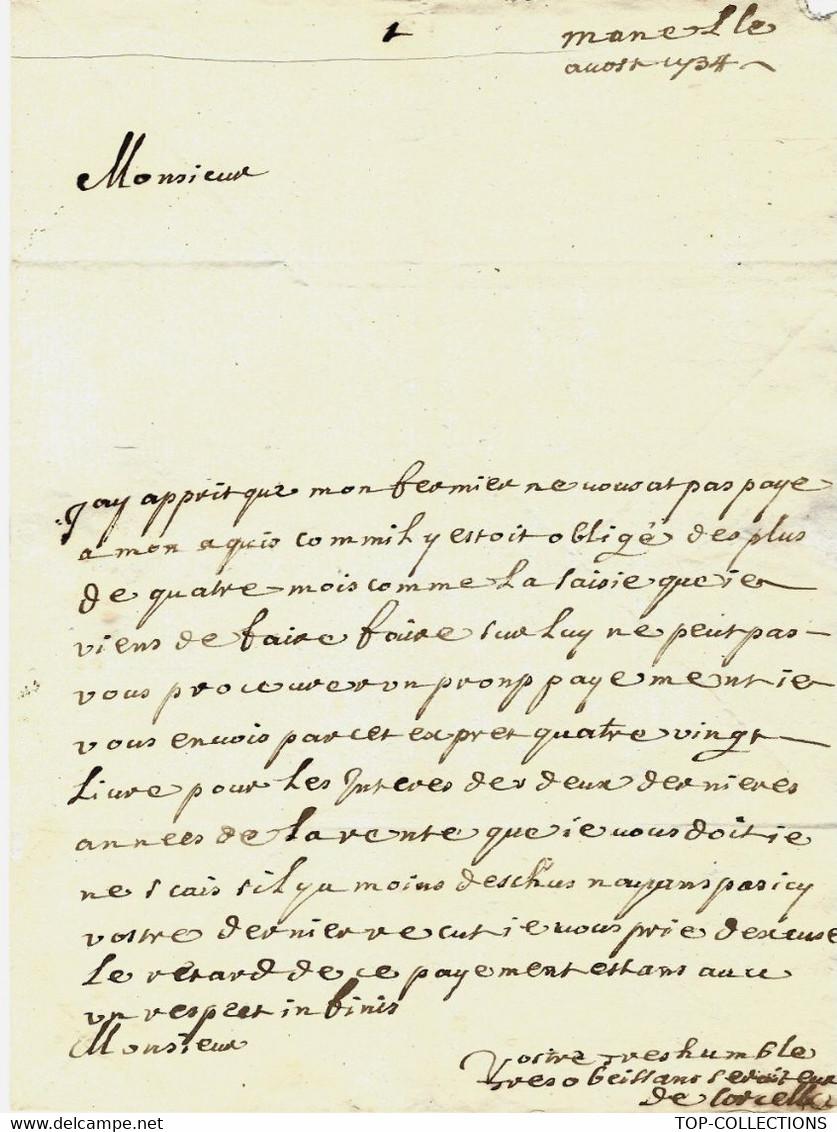 avost 1734
Monsieur
Jay apprit que mon fermier ne vous at pas paye
a mon aquis commil y estoit obligé des plus
de quatre mois comme la saisie que ie
viens de faire faire sur luy ne peut pas
vous procurer un pronp payement ie
vous envois par cet expret quatre vingt
livre pour les Interes des deux dernieres
annees de la rente que ie vous doit ie
ne scais sil ya moins deschus nayans pas icy
vostre dernier recut ie vous prie dexcuse
le retard de ce payement estans avec
un respect infinis
Monsieur
Vostre tres humble
tres obeissans serviteur
de Corcelle
TOP-COLLECTIONS